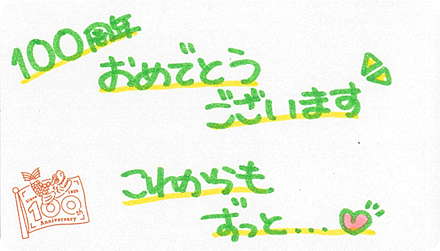 100周年
おめでとう
ございます
これからも
ずっと....
100
Anniversary